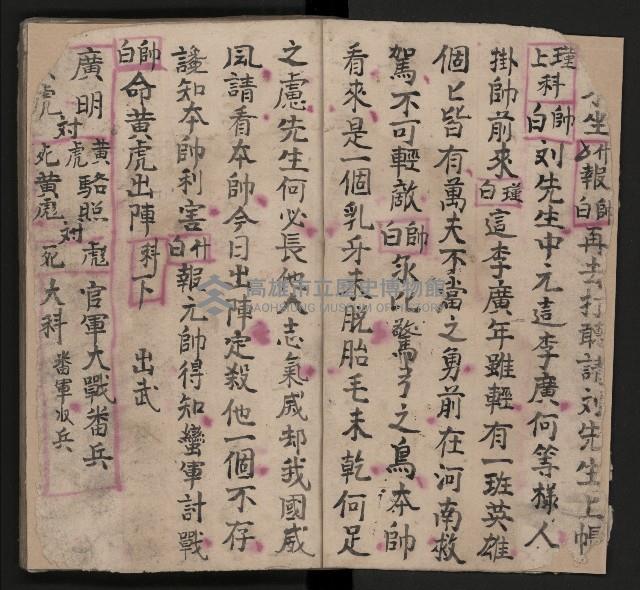 坐 卄報 帥白 再去打聽請刘先生上帳
瑾上科 帥白 刘先生中元這李廣何等樣人
掛帥前來 瑾白 這李廣年雖輕有一班英雄
個匕皆有萬夫不當之勇前在河南救
駕不可輕敵 帥白 永比驚弓之鳥本帥
看來是一個乳牙未脫胎毛未乾何足
之慮先生何必長他人志氣威却我國威
風請看本帥今日出陣定殺他一個不存
譏知本帥利害 卄白 報元帥得知蠻軍討戰
帥白 命黃虎出陣 科下 出武
廣明 對 黃虎 駱照 對 彪 官軍大戰番兵
虎死 黃彪死 大科 番軍收兵
高雄市立歷史博物館
KAOHSIUNG MUSEUM OF HISTORY